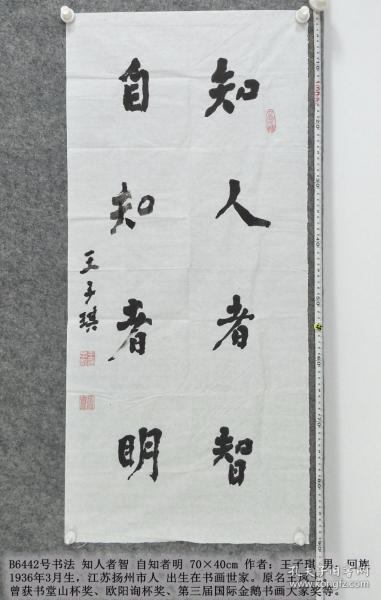 知人者智
自知者明
王子琪
B6442号书法 知人者智 自知者明 70×40cm 作者：王子琪 男，回族
1936年3月生，江苏扬州市人 出生在书画世家。原名王琪
曾获书堂山杯奖、欧阳询杯奖、第三届国际金鹅书画大家奖等。